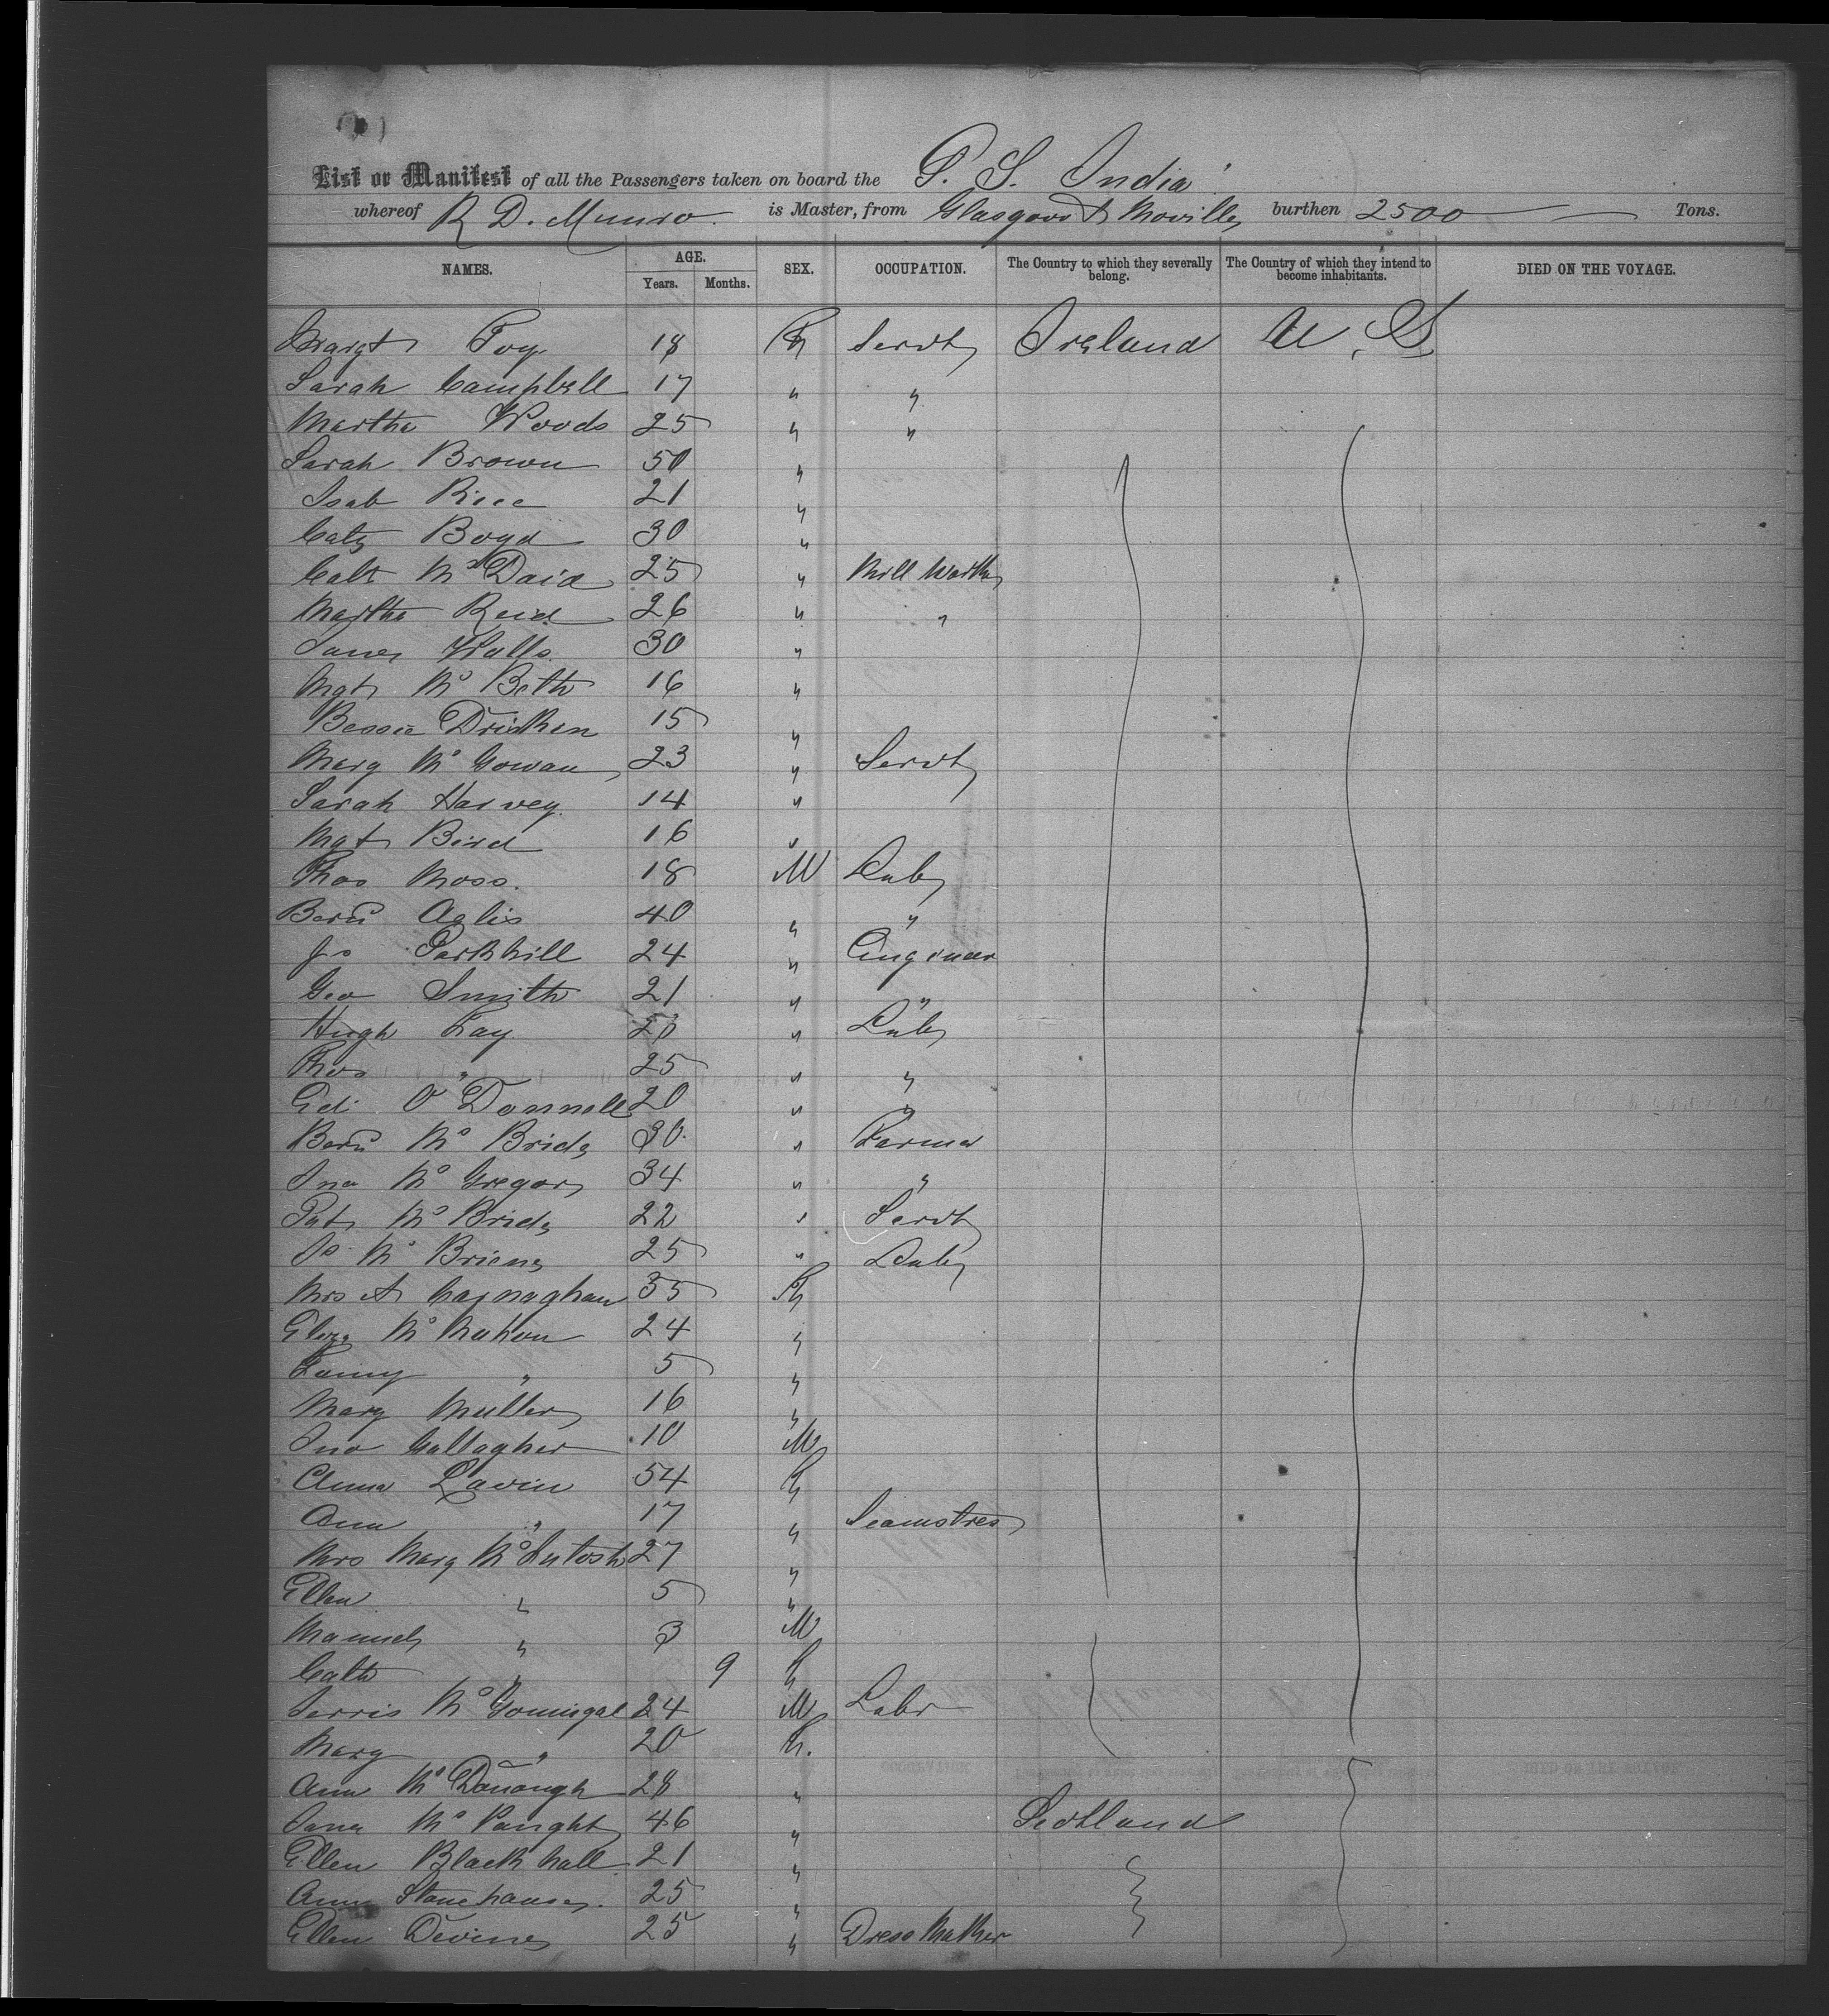 List or Manifest of all the Passengers taken on board the P. S. India
whereof R D. Munro is Master, from Glasgow & Moville burthen 2500 Tons.
NAMES. AGE. Years. Months. SEX. OCCUPATION. The Country to which they severally belong. The Country of which they intend to become inhabitants. DIED ON THE VOYAGE.
Margt Foy 18 F Servt Ireland U. S.
Sarah Campbell 17 " "
Martha Woods 25 " "
Sarah Brown 50 "
Isab Rice 21 "
Cath Boyd 30 "
Cath McDaid 25 " Mill Worker
Martha Reid 26 " "
James Walls 30 "
Mgt McBeth 16 "
Bessie 15 "
Mary McGowan 23 " Servt
Sarah Harvey 14 "
Mgt Bird 16 "
Thos Moss. 18 M Lab
Bernd 40 " "
Js Parkhill 24 " Engineer
Geo Smith 21 " "
Hugh Fay " Lab
Thos " 25 " "
Ed O'Donnell 20 " "
Bernd McBride 30 " Farmer
Jno McGregor 34 " "
Pat McBride 22 " Servt
Js McBriene 25 " Lab
Mrs A Carnaghan 35 F
Eliza McMahon 24 "
Fanny " 5 "
Mary Muller 16 "
Jno Gallagher 10 M
Anna Lavin 54 F
Ann " 17 " Seamstress
Mrs Mary McIntosh 27 "
Ellen " 5 "
" 3 M
Cath " 9 F
McGonnigal 24 M Labr
Mary " 20 F.
Ann McDonough 28 "
Jane 46 " Scotland
Ellen Blackhall 21 "
Ann Stonehouse. 25 "
Ellen Devine 25 " Dress Maker